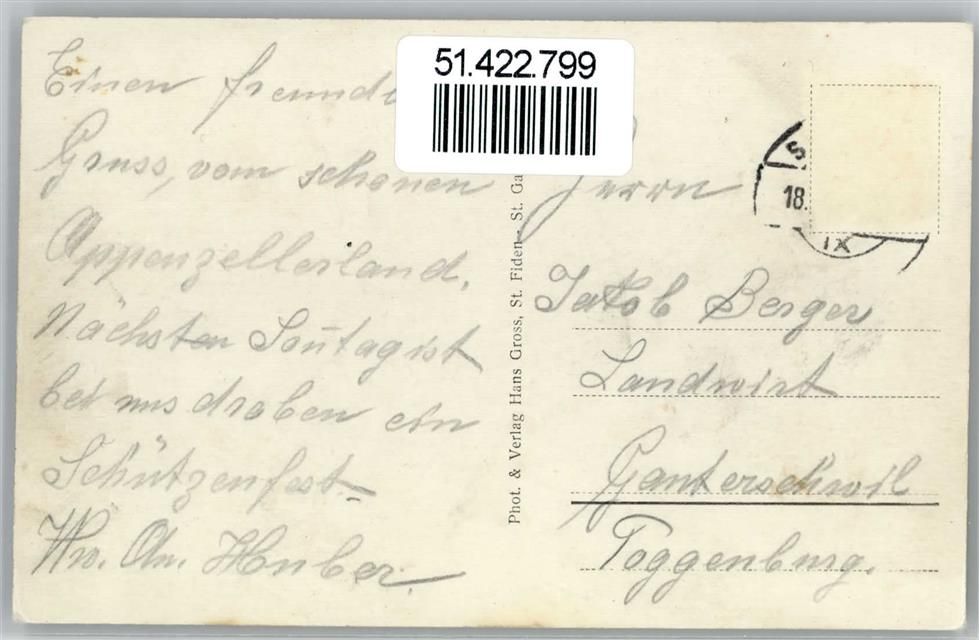 51.422.799
Einen freundl
Gruss, vom schönen
Appenzellerland,
Nächsten Soñtag ist
bei uns droben ein
Schützenfest.
Ww. Chr. Huber.
Phot. & Verlag Hans Gross, St. Fiden - St. Ga
Herrn
Jakob Berger
Landwirt
Ganterschwil
Toggenburg.
S
18.
IX